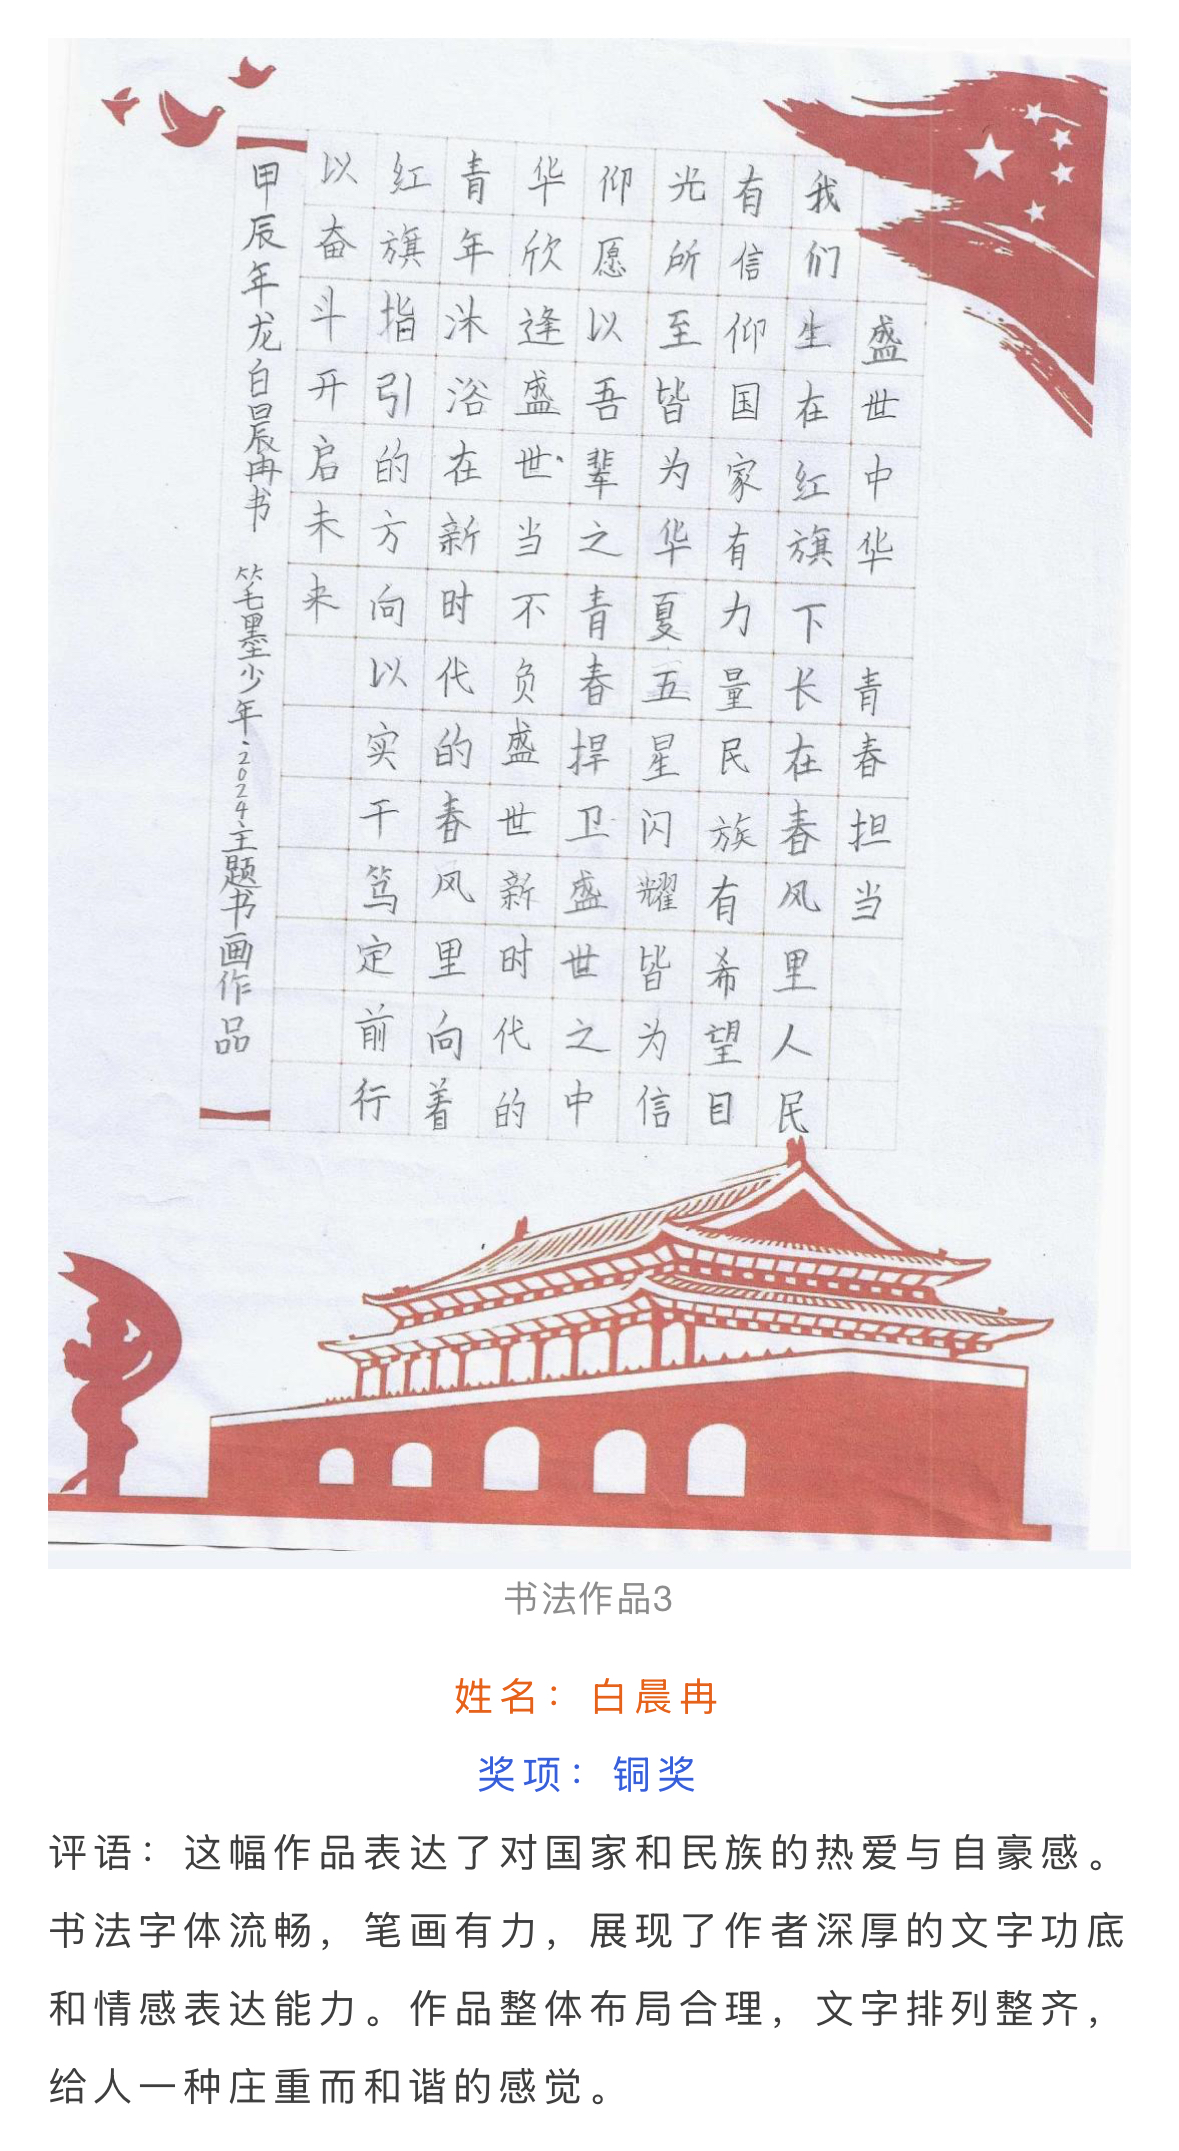 盛世中华 青春担当
我们生在红旗下长在春风里人民
有信仰国家有力量民族有希望目
光所至皆为华夏五星闪耀皆为信
仰愿以吾辈之青春捍卫盛世之中
华欣逢盛世当不负盛世新时代的
青年沐浴在新时代的春风里向着
红旗指引的方向以实干笃定前行
以奋斗开启未来
甲辰年龙白晨冉书 笔墨少年·2024主题书画作品
书法作品3
姓名：白晨冉
奖项：铜奖
评语：这幅作品表达了对国家和民族的热爱与自豪感。
书法字体流畅，笔画有力，展现了作者深厚的文字功底
和情感表达能力。作品整体布局合理，文字排列整齐，
给人一种庄重而和谐的感觉。